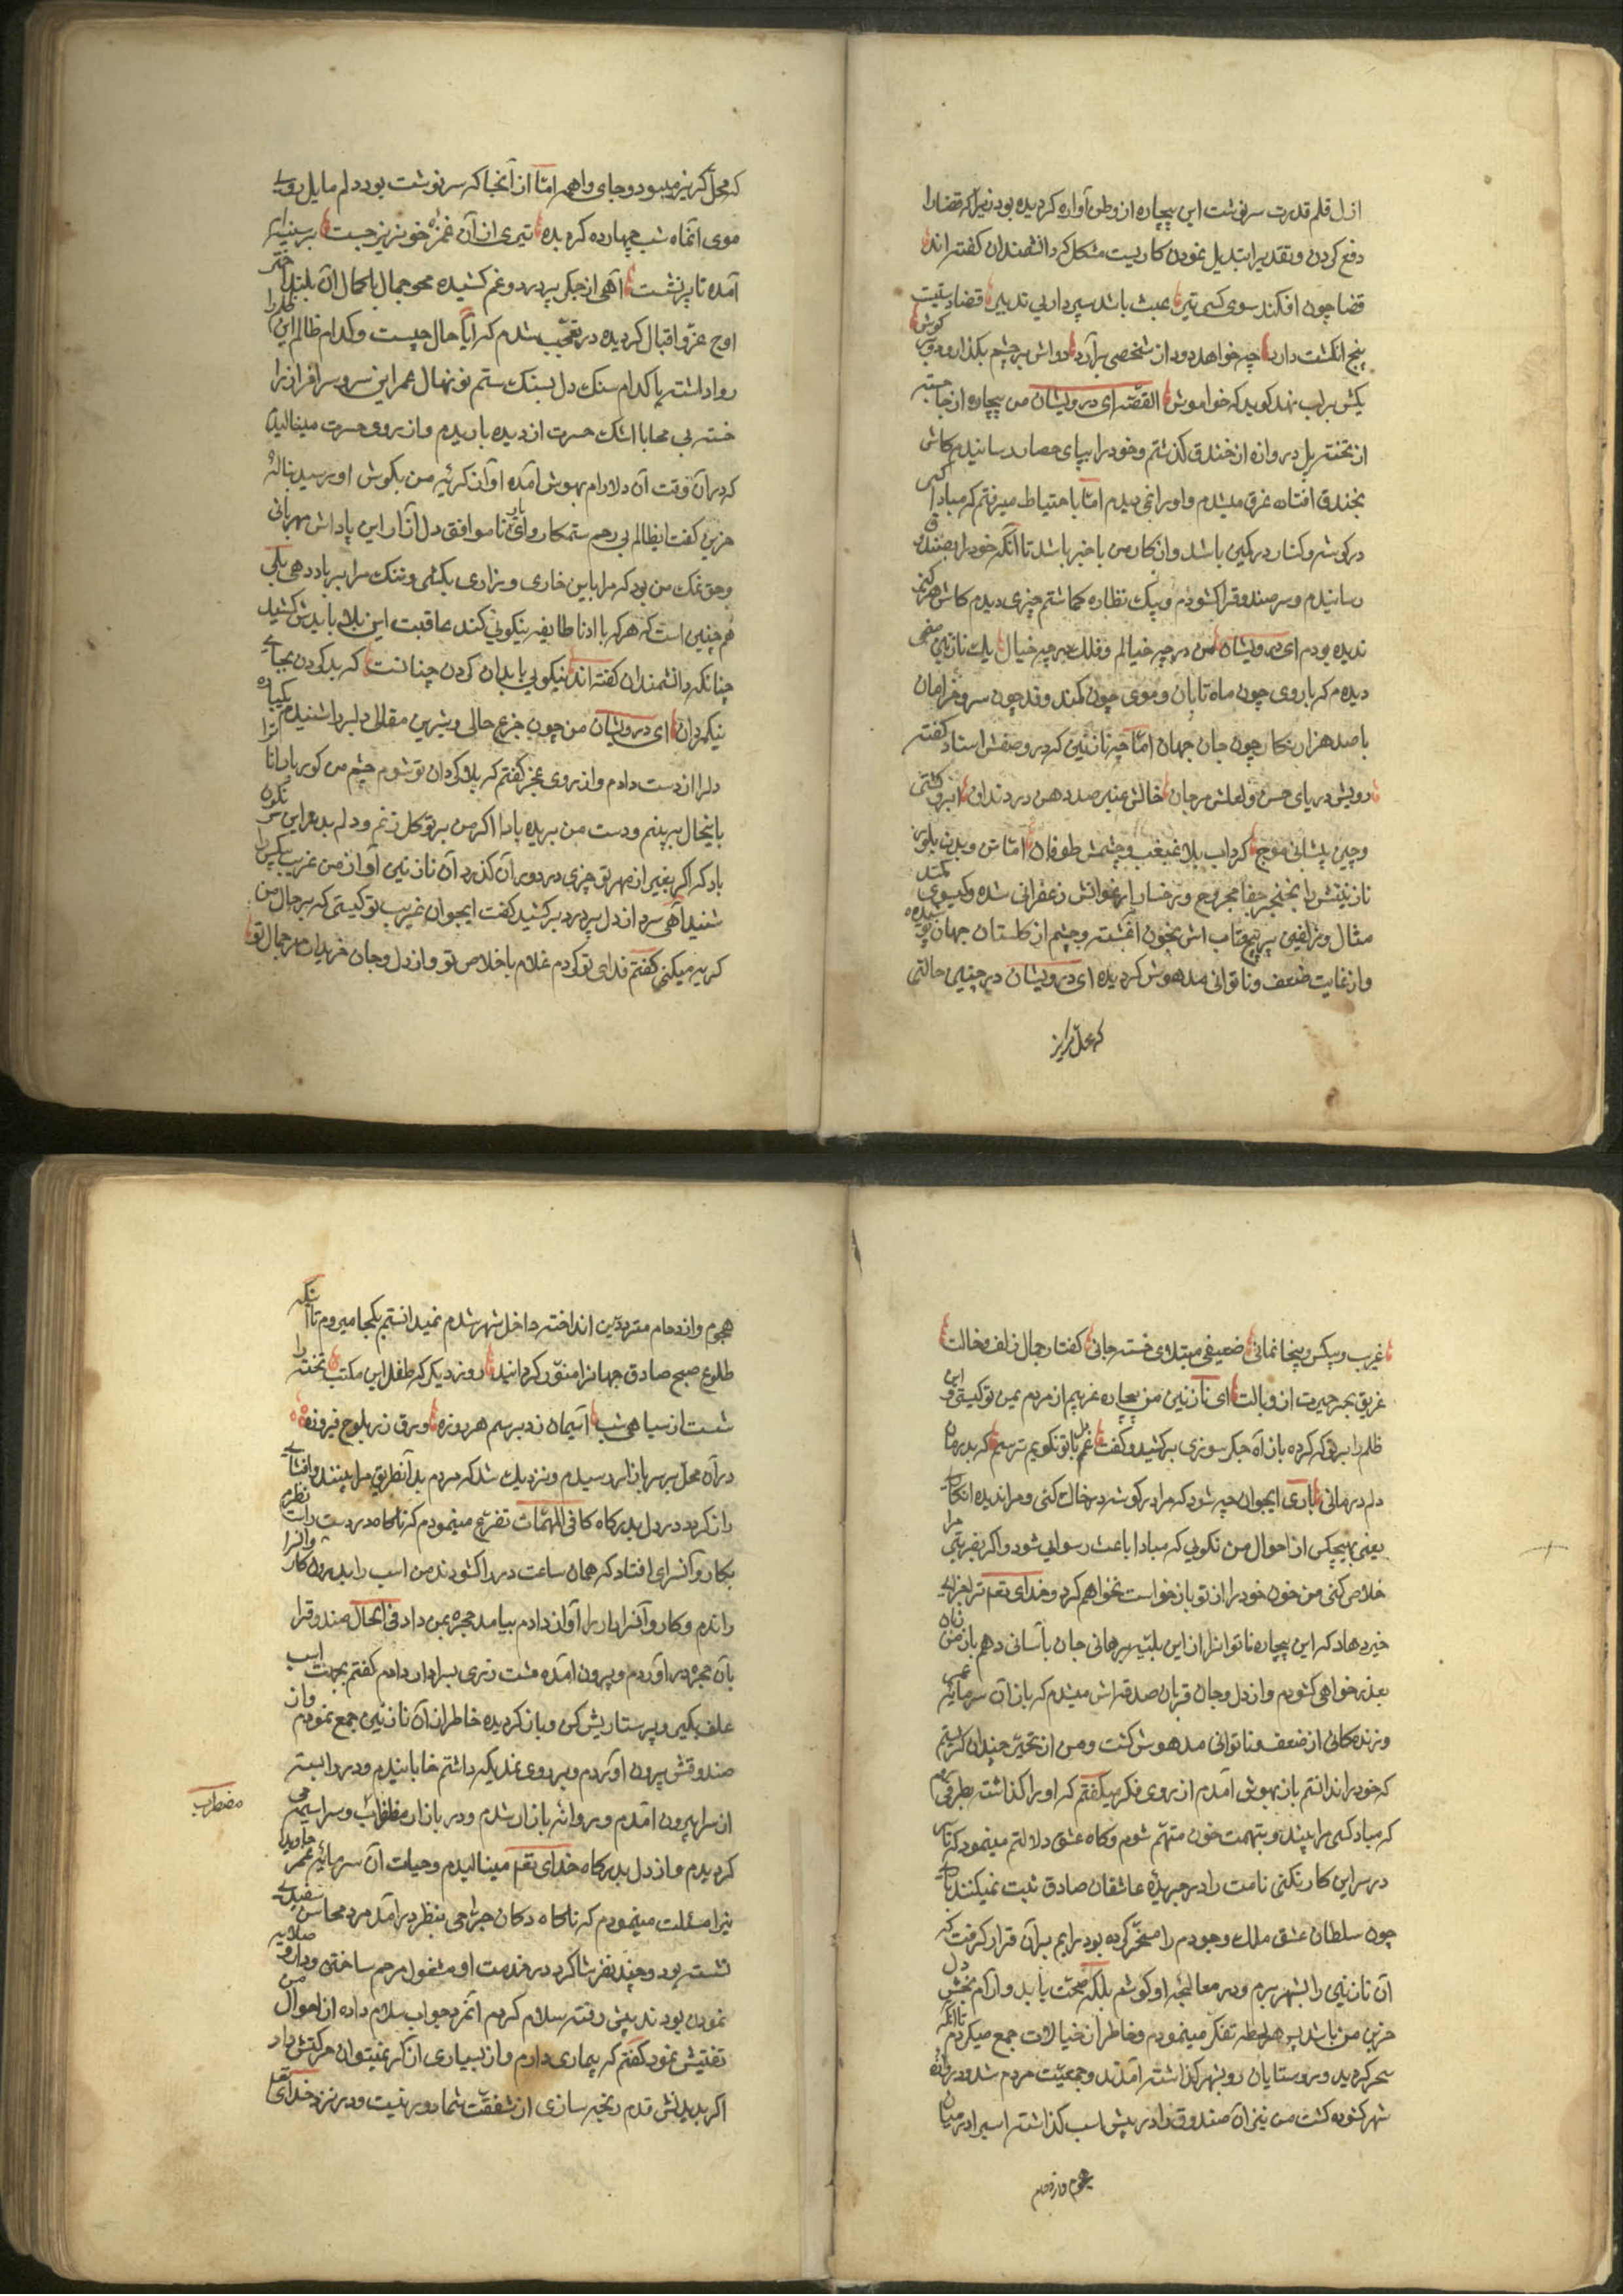 ازل قلم قدرت سرنوشت این بیچاره از وطن آواره کردیده بود زیرا که قضا را
دفع کردن و تقدیر را تبدیل نمودن کاریست مشکل که دانشمندان کفته اند
قضا چون افکند سوی کسی تیر عبث باشد سپرداری تدبیر قضا دستیست
پنج انکشت دارد چه خواهد دود از شخصی برآرد دو اش بر چشم بکذارد دو بر کوش
یکش بر لب نهد کوید که خواموش القصه ای درویشان من بیچاره از جا جسته
از تخته پل دروازه از خندق کذشتم و خود را بپای حصار رسانیدم کاش
بخندق افتاده غرق میشدم و او را نمی دیدم اما با احتیاط میرفتم که مبادا کسی
در کوشه و کنار در کمین باشد و از کار من با خبر باشد تا آنکه خود را بصندوق
رسانیدم و سر صندوق را کشودم و پیک نظاره کماشتم چیزی دیدم کاش هرکز نمی
ندیده بودم ای درویشان من در چه خیالم و فلک در چه خیال یک نازنین صنمی
دیدم که با روی چون ماه تابان و موی چون کمند و قد چون سرو خرامان
با صد هزار نکار چون جان جهان اما چه نازنین که در وصفش استاد کفته
رویش دریای حسن و لعلش مرجان خالش عنبر صدف دهن در دندان ابرو کشتی
و چین پیشانی موج کرداب بلا غبغب و چشمش طوفان اما تن و بدن بلور
نازنینش را بخنجر جفا مجروح و رخسار ارغوانش زعفرانی شده و کیسوی کمند
مثال و زلفین پر پیچ و تاب اش بخون آغشته و چشم از کلستان جهان پوشیده
و از غایت ضعف و ناتوانی مدهوش کردیده ای درویشان در چنین حالتی
که محل کریز
که محل کریز میبود و جای واهمه اما از آنجا که سرنوشت بود دلم مایل روی
موی آنماه شب چهارده کردیده تیری از آن غمزه خونریز جست بر سینه ام
آمده تا پر نشست آهی از جکر پر درد و غم کشیده محو جمال با کمال آن بلند اختر
اوج عز و اقبال کردیده در تعجب شدم که آیا حال چیست و کدام ظالم این ظلم را
روا داشته یا کدام سنک دل بسنک ستم نو نهال عمر این سرو سرافراز را
خسته بی محابا اشک حسرت از دیده باریدم و از روی حسرت مینالیدم
که در آن وقت آن دلارام بهوش آمده آواز کریه من بکوش او رسید بناله
حزین کفت ایظالم بی رحم ستمکار و ای یار ناموافق دل آزار این پاداش مهربانی
و حق نمک من بود که مرا باین خاری و زاری بکشی و ننک مرا بر باد دهی بلی
هم چنین است که هر که با ادنا طایفه نیکوئی کند عاقبت این بلا بایدش کشید
چنانکه دانشمندان کفته اند نیکوئی با بدان کردن چنانست که بد کردن بجای
نیکمردان ای درویشان من چون جزع حالی و شیرین مقالی دلبر را شنیدم یکباره
دل را از دست دادم و از روی عجز کفتم که بلا کردان تو شوم چشم من کور باد تا ترا
باینحال نبینم و دست من بریده باد اکر من بر تو کل زنم و دلم بد و این سر نکون
باد که اکر بغیر از مهر تو چیزی در دوران کذرد آن نازنین آواز من غریب بیکس را
شنید آهی سرد از دل پر درد برکشید کفت ایجوان غریب تو کیستی که بر حال من
کریه میکنی کفتم فدای تو کردم غلام با خلاص تو و از دل و جان خریدار مهر جمال تو
غریب و بیکس و بیخانمانی ضعیفی مبتلای خسته جانی کفتار جمال زلف و خالت
غریق بحر حیرت از وبالت ای نازنین من بیچاره غریبم از مردم یمن تو کیستی و این
ظلم را بر تو که کرده باز آه جکر سوزی برکشید و کفت غم دل با تو نکویم ترسم که بدرمان
دلم درمانی باری ایجوان چه شود که مرا در کوشه در خاک کنی و مرا ندیده انکاری
یعنی بهیچکس از احوال من نکوئی که مبادا باعث رسوائی شود و اکر بضربتی مرا
خلاص کنی من خون خود را از تو باز خواست نخواهم کرد و خدای تعم ترا جزای
خیر دهاد که این بیچاره ناتوانرا از این بلیه برهانی جان بآسانی دهم باز من زبان
بعذر خواهی کشودم و از دل و جان قربان صدقه اش میشدم که باز آن سرمایه عمر
و زندکانی از ضعف و ناتوانی مدهوش کشت و من از تحیر چندان کریستم
که خود را ندانستم باز بهوش آمدم از روی فکر میکفتم که او را کذاشته بطرفی روم
که مباد کسی مرا بیند و بتهمت خون متهم شوم و کاه عشق دلالتم مینمود که تا سر
در سر این کار نکنی نامت را در جریده عاشقان صادق ثبت نمیکنند باری
چون سلطان عشق ملک وجودم را مسخر کرده بود رایم بر آن قرار کرفت که
آن نازنین را بشهر برم و در معالجه او کوشم بلکه صحت یابد و آرام بخش دل
حزین من باشد پس هر لحظه تفکر مینمودم و خاطر از خیالات جمع میکردم تا آنکه
سحر کردید و روستایان رو بشهر کذاشته آمدند و جمعیت مردم شد و دروازه
شهر کشوده کشت من نیز آن صندوق را در پیش اسب کذاشته اسب را در میان
هجوم و ازدحام
هجوم و ازدحام مترددین انداخته داخل شهر شدم نمیدانستم بکجا میروم تا آنکه
طلوع صبح صادق جهانرا منور کردانید روز دیکر که طفل این مکتب تخته را
شست از سیاهی شب آسمان زد برسم هر روزه ورق زر بلوح فیروزه
در آن محل بر سر بازار رسیدم و نزدیک شد که مردم بد آنطریق مرا بینند و افشای
راز کردد در دل بدرکاه کافی المهمات تضرع مینمودم که ناکاه در دست راست نظرم
بکاروانسرای افتاد که همان ساعت در را کشودند من اسب را بدرون کاروانسرا
راندم و کاروانسرادار را آواز دادم بیامد حجره بمن داد فی الحال صندوق را
بآن حجره در آوردم و بیرون آمده مشت زری بسرادار دادم کفتم بجهت اسب
علف بکیر و پرستاریش کن و باز کردیده خاطر از آن نازنین جمع نمودم و از
صندوقش بیرون آوردم و بر روی نمدیکه داشتم خابانیدم و در را بسته
از سرا بیرون آمدم و روانه بازار شدم و در بازار مظطرب و سراسیمه می
مضطرب
کردیدم و از دل بدرکاه خدای تعم مینالیدم و حیات آن سرمایه عمر جاوید
را مسئلت مینمودم که ناکاه دکان جراحی بنظر در آمد مرد محاسن سفیدی
نشسته بود و چند نفر شاکرد در خدمت او مشغول مرهم ساختن و دارو صلایه
نمودن بودند پیش رفته سلام کردم آنمرد جواب سلام داده از احوال من
تفتیش نمود کفتم که بیماری دارم و از بسیاری آزار نمیتوان حرکتش داد
اکر بدیدنش قدم رنجه سازی از شفقت شما دور نیست و در نزد خدای تعم